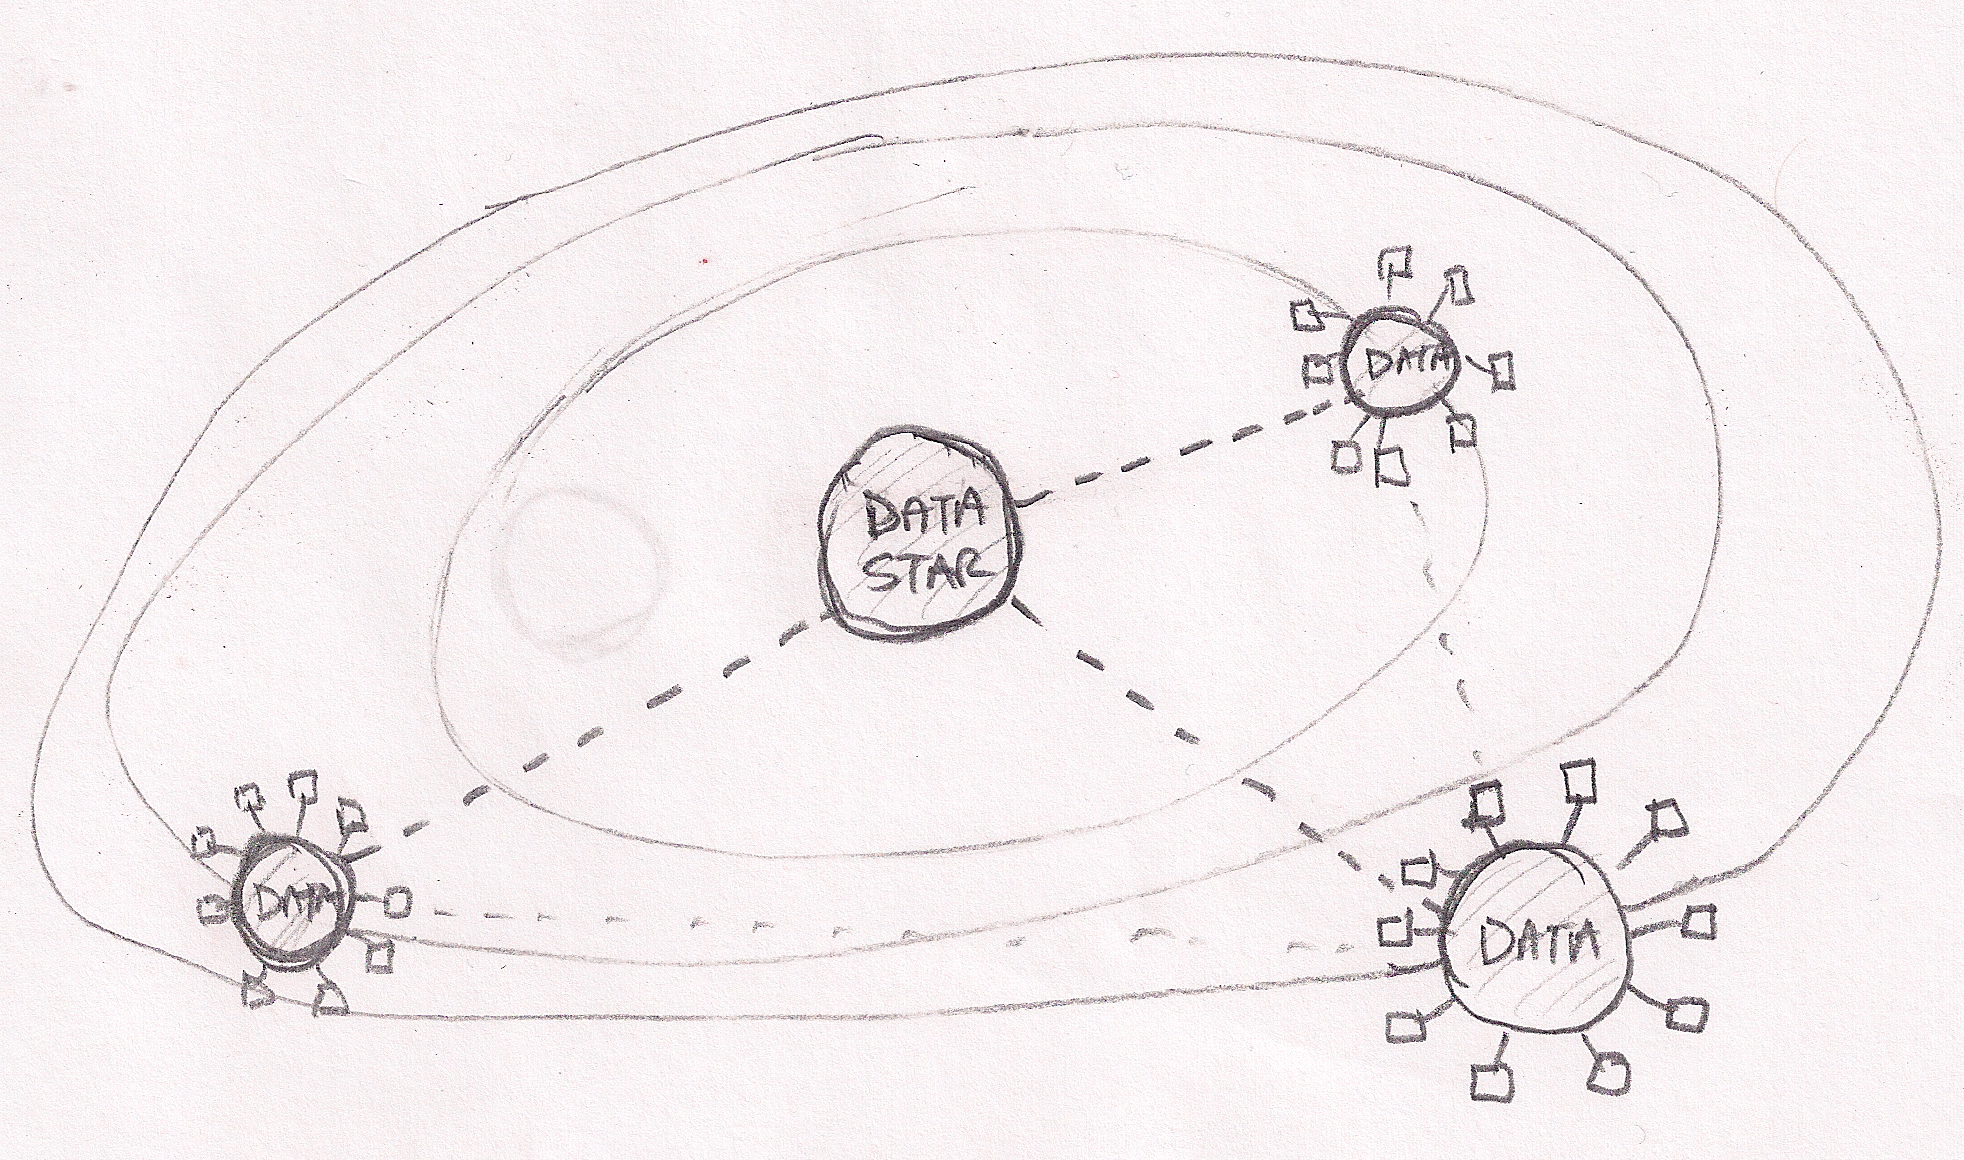 DATA
DATA
STAR
DATA
DATA